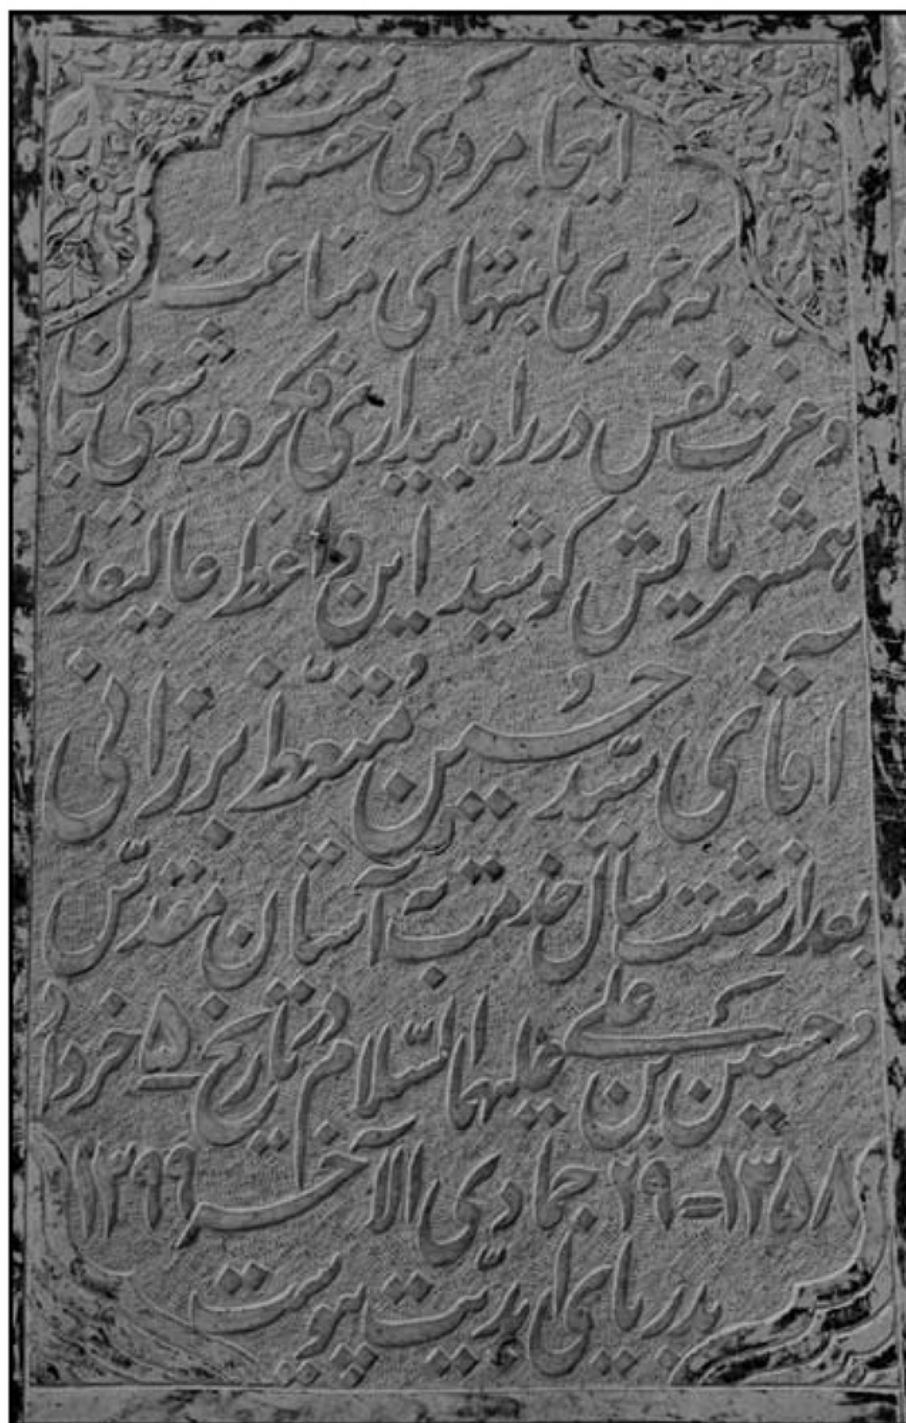 اینجا مردی خفته است
که عُمری با منتهای مناعت
و عزّت نفس در راه بیداری فکر و روشنی جان
همشهریانش کوشید این واعظ عالیقدر
آقای سیّد حُسین مُتعّظ برزانی
بعد از شصت سال خدمت به آستان مقدّس
حسین بن علی علیهما السّلام در تاریخ ۵ خرداد
۱۳۵۸ = ۲۹ جمادی الآخر ۱۳۹۹
بدریای ابدیّت پیوست